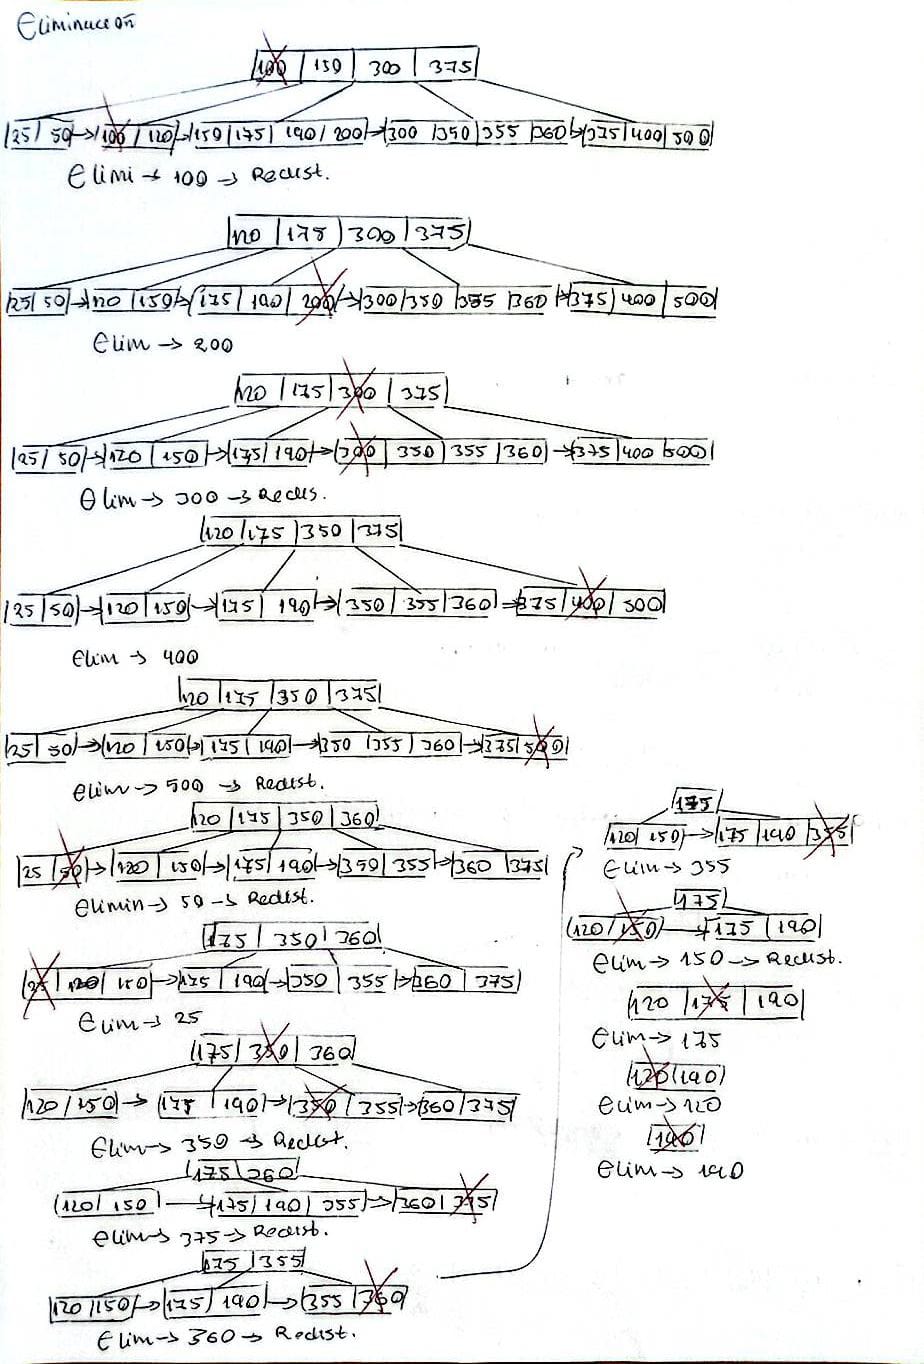 Eliminacion
100 | 150 | 300 | 375
25 | 50 → 100 | 120 → 150 | 175 | 190 | 200 → 300 | 350 | 355 | 360 → 375 | 400 | 500
Elimi → 100 → Redist.
120 | 175 | 300 | 375
25 | 50 → 120 | 150 → 175 | 190 | 200 → 300 | 350 | 355 | 360 → 375 | 400 | 500
Elim → 200
120 | 175 | 300 | 375
25 | 50 → 120 | 150 → 175 | 190 → 300 | 350 | 355 | 360 → 375 | 400 | 500
Elim → 300 → Redis.
120 | 175 | 350 | 375
25 | 50 → 120 | 150 → 175 | 190 → 350 | 355 | 360 → 375 | 400 | 500
Elim → 400
120 | 175 | 350 | 375
25 | 50 → 120 | 150 → 175 | 190 → 350 | 355 | 360 → 375 | 500
Elim → 500 → Redist.
120 | 175 | 350 | 360
25 | 50 → 120 | 150 → 175 | 190 → 350 | 355 → 360 | 375
Elimin → 50 → Redist.
175 | 350 | 360
25 | 120 | 150 → 175 | 190 → 350 | 355 → 360 | 375
Elim → 25
175 | 350 | 360
120 | 150 → 175 | 190 → 350 | 355 → 360 | 375
Elim → 350 → Redist.
175 | 360
120 | 150 → 175 | 190 | 355 → 360 | 375
Elim → 375 → Redist.
175 | 355
120 | 150 → 175 | 190 → 355 | 360
Elim → 360 → Redist.
175
120 | 150 → 175 | 190 | 355
Elim → 355
175
120 | 150 → 175 | 190
Elim → 150 → Redist.
120 | 175 | 190
Elim → 175
120 | 190
Elim → 120
190
Elim → 190